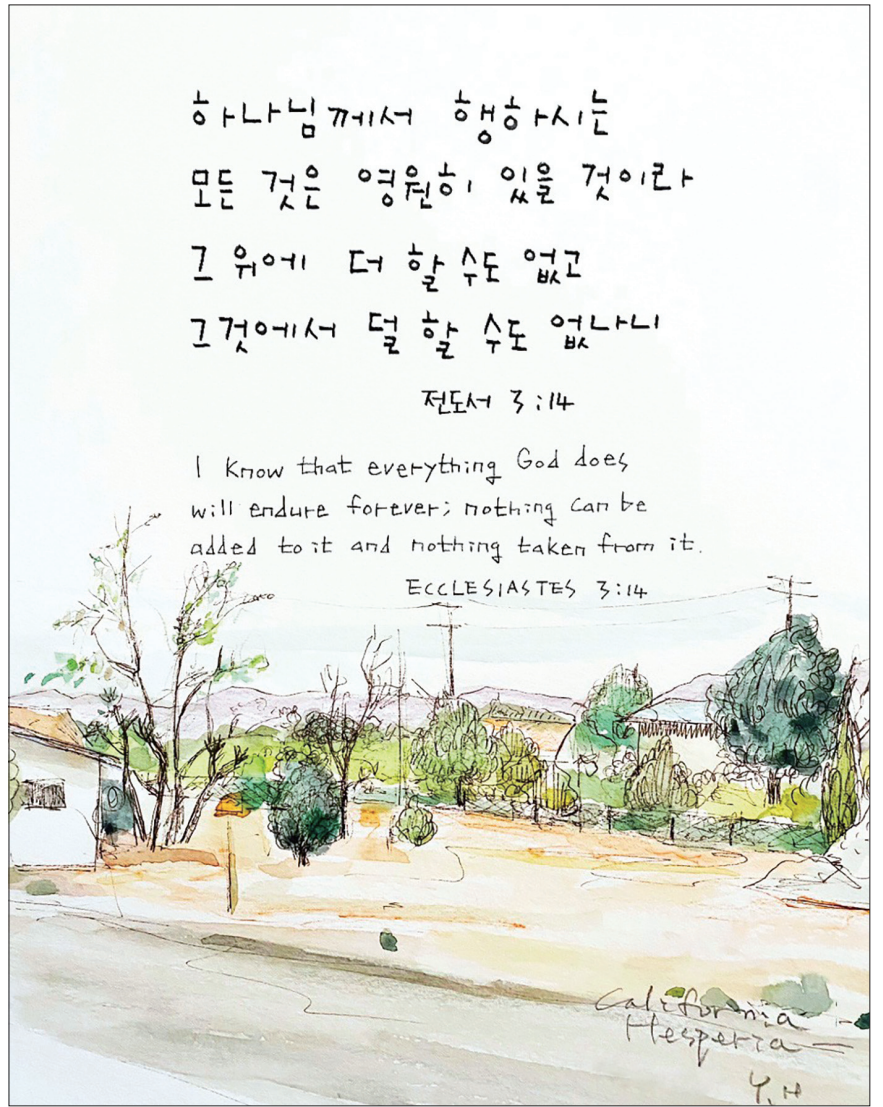 하나님께서 행하시는
모든 것은 영원히 있을 것이라
그 위에 더 할 수도 없고
그것에서 덜 할 수도 없나니
전도서 3:14
I know that everything God does
will endure forever; nothing can be
added to it and nothing taken from it.
ECCLESIASTES 3:14
California
Hesperia
Y.H